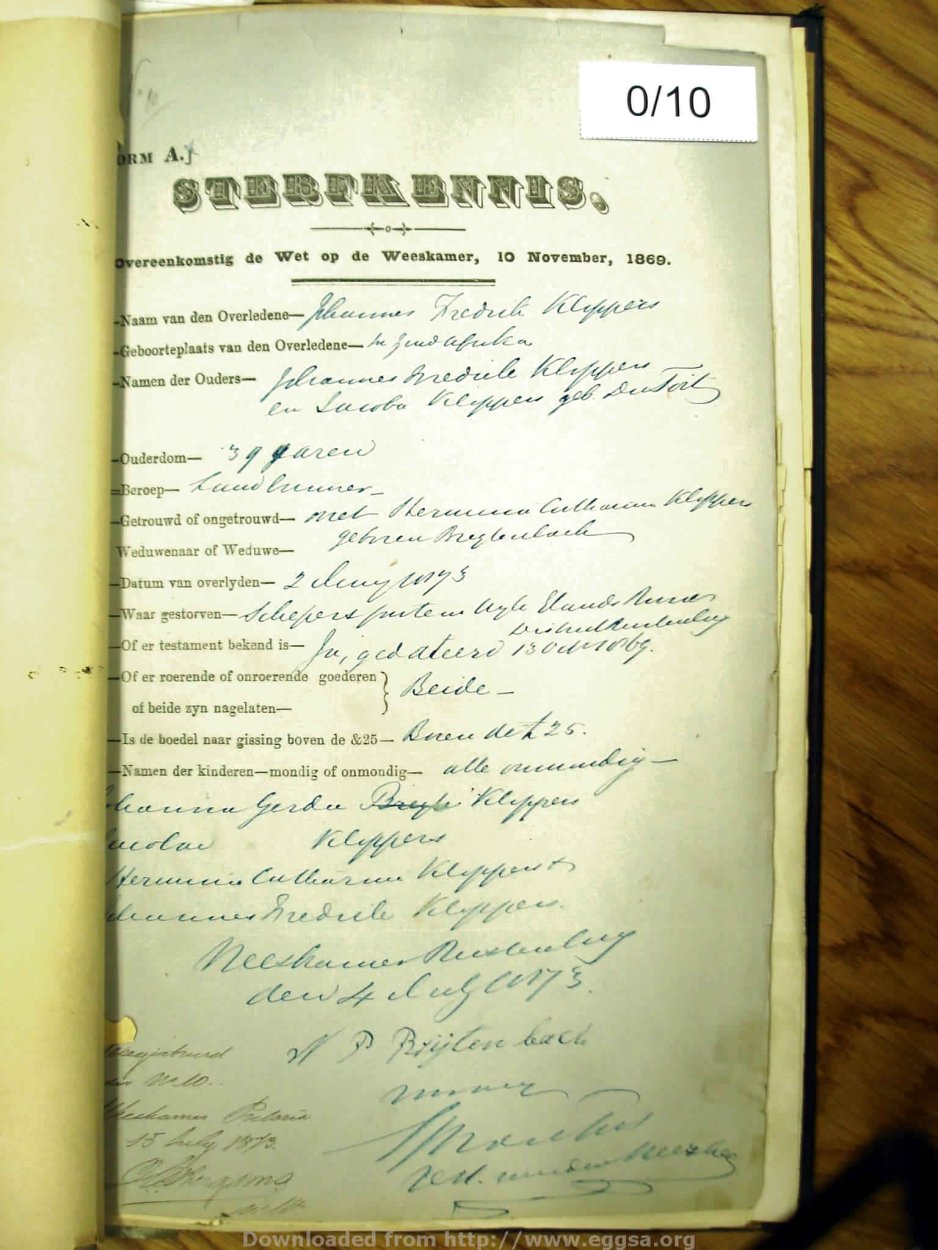 0/10
ORM A.]
STERFKENNIS.
Overeenkomstig de Wet op de Weeskamer, 10 November, 1869.
—Naam van den Overledene— Johannes Fredrik Kleppers
—Geboorteplaats van den Overledene— In Zuid Afrika
—Namen der Ouders— Johannes Fredrik Kleppers
en Jacoba Kleppers geb. Du Toit
—Ouderdom— 39 Jaren
—Beroep— Landbouwer—
—Getrouwd of ongetrouwd— met Hermina Catharina Kleppers
Weduwenaar of Weduwe— geboren Breytenbach
—Datum van overlyden— 2 1873
—Waar gestorven— Schepersfontein Wyk Elands Rivier
District Rustenburg
—Of er testament bekend is— Ja, gedateerd 13 Oct 1869.
—Of er roerende of onroerende goederen } Beide—
of beide zyn nagelaten—
—Is de boedel naar gissing boven de &25— Boven de £25.
—Namen der kinderen—mondig of onmondig— alle onmondig—
Gerda Kleppers
Kleppers
Hermina Catharina Kleppers
Johannes Fredrik Kleppers.
Weeskamer Rustenburg
den 4 July 1873.
P Brijtenbach
Geregistreerd
No 10.
Weeskamer Pretoria
15 July 1873.
Downloaded from http://www.eggsa.org